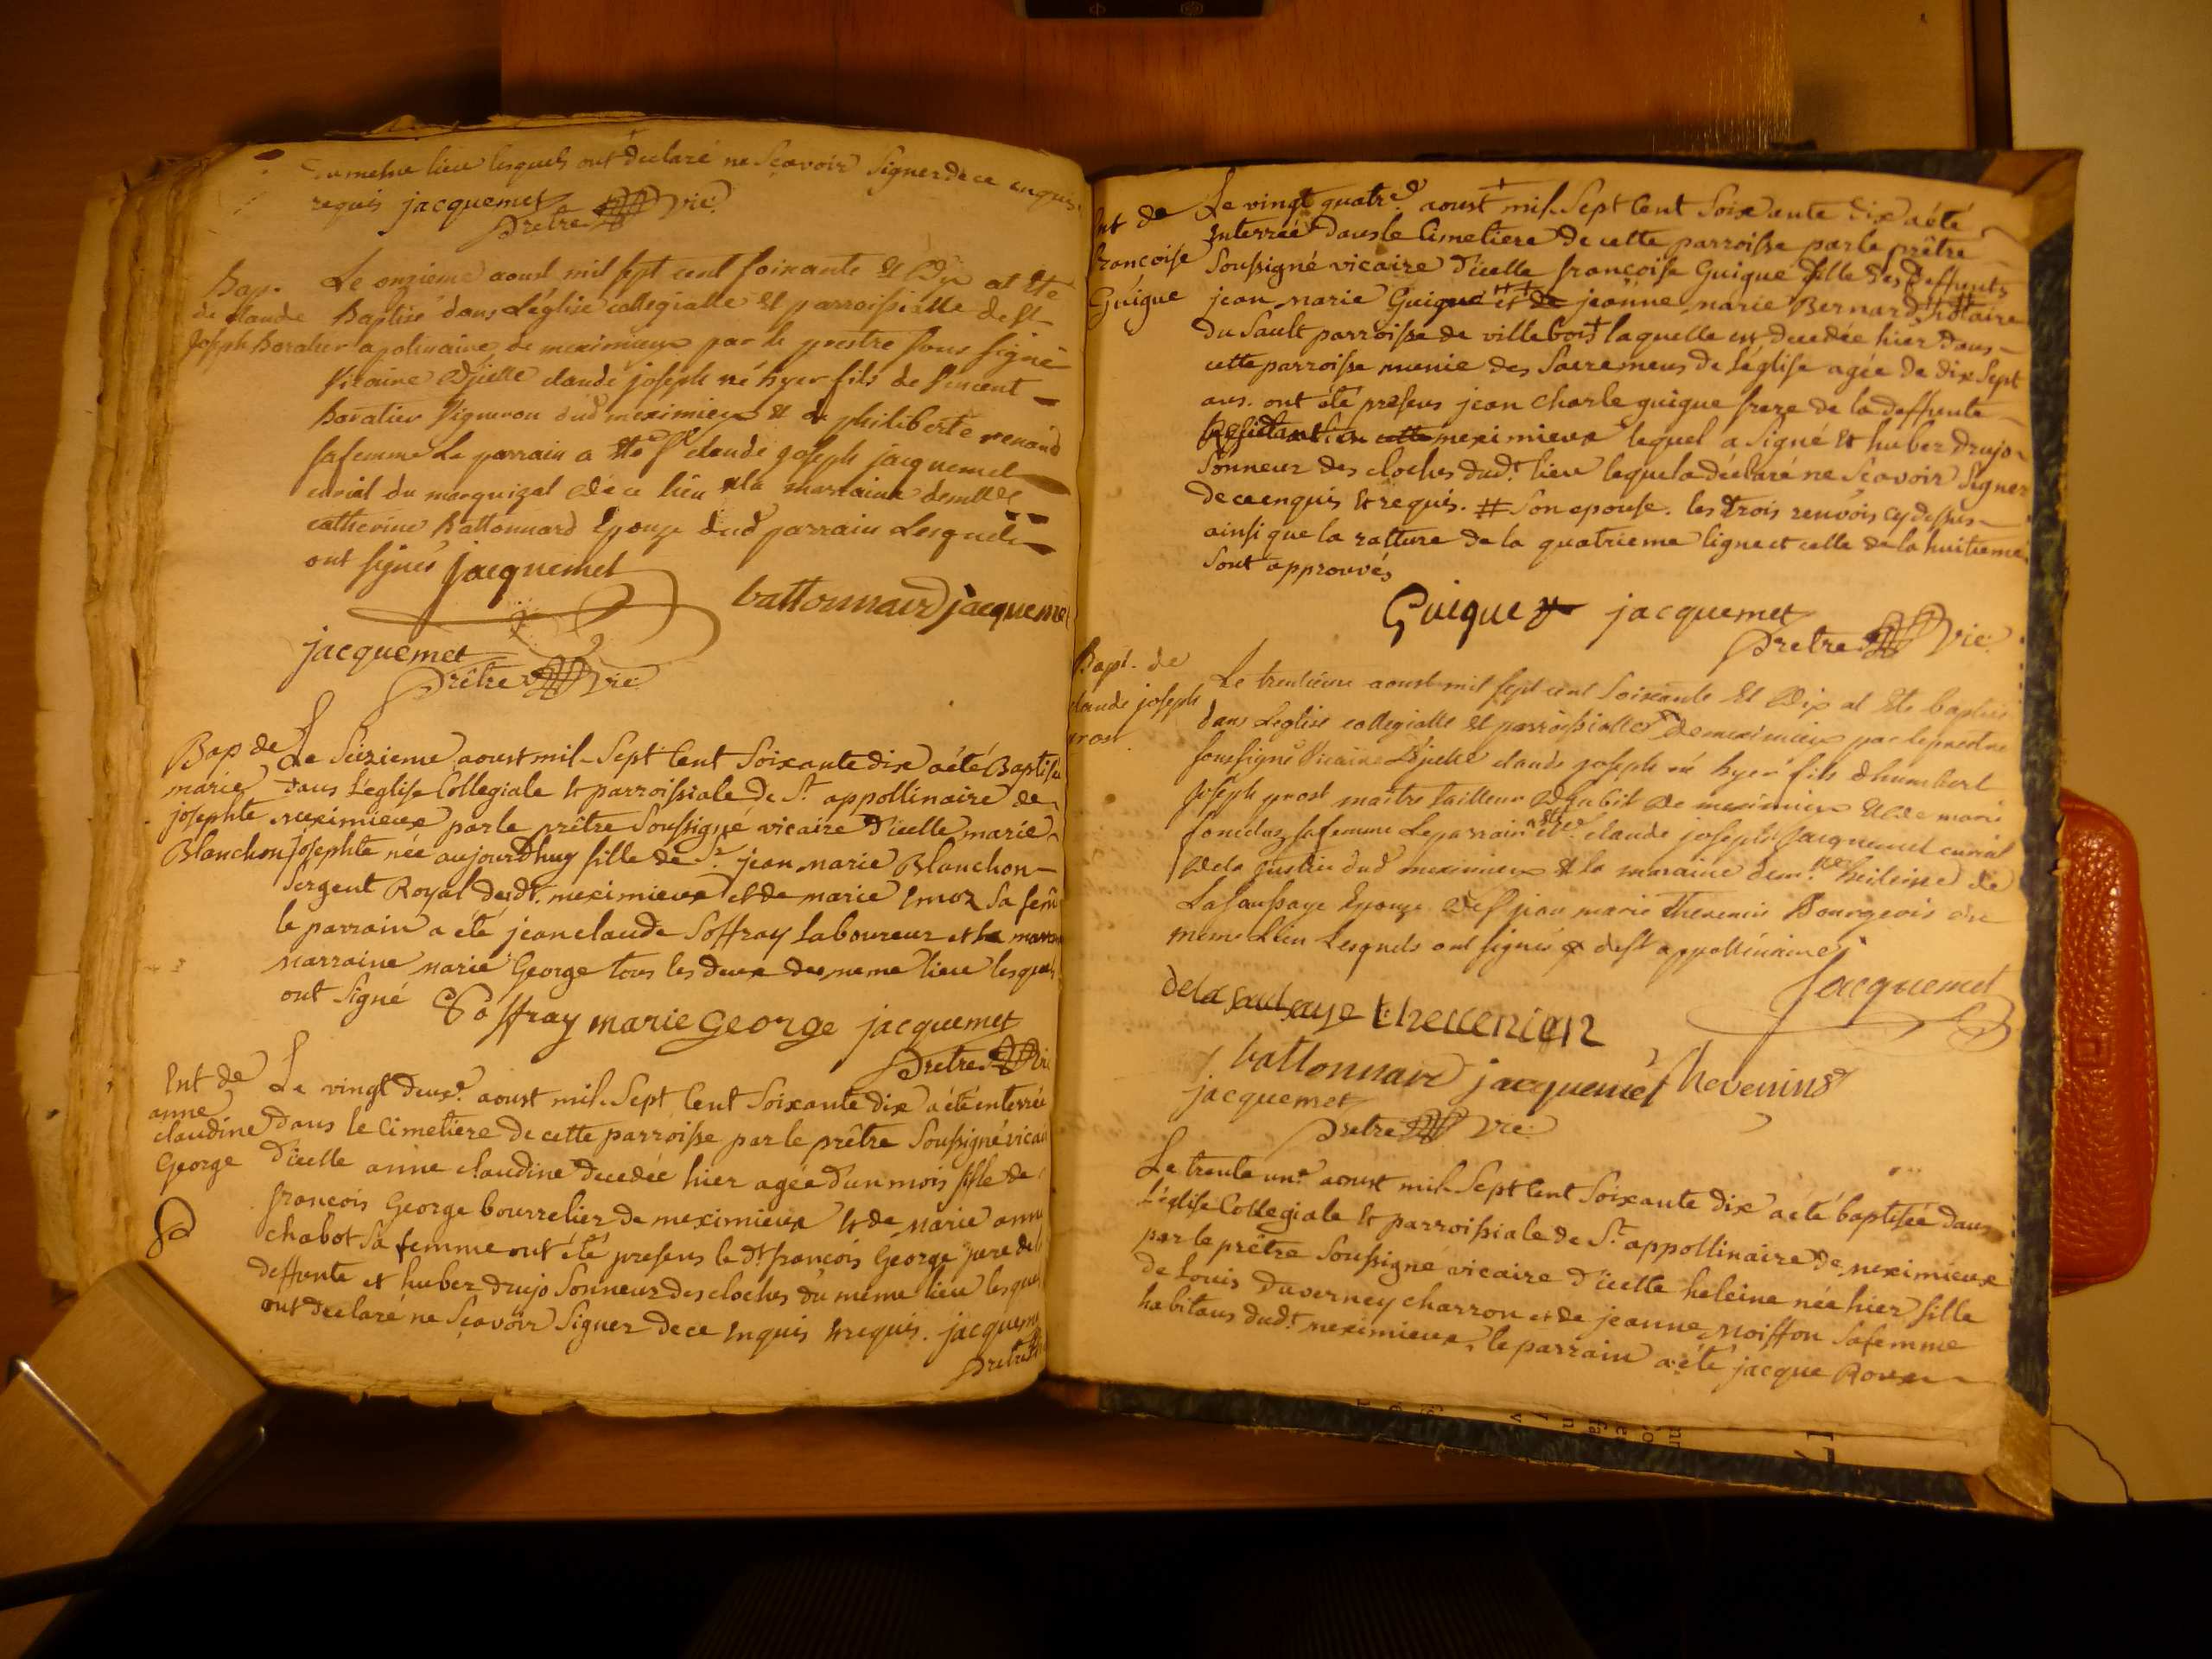 du mesme lieu lesquels ont declaré ne sçavoir signer de ce enquis
requis jacquemet
prêtre vic.
Bap.
de claude
joseph
Le onzieme aoust mil sept cent soixante et dix at été
Baptisé dans Léglise collegialle et parroissialle de st
apolinaire de meximieux par le prestre sous signé
Vicaire djcelle claude joseph né hyer fils de Vincent
Vigneron dud meximieux et de philiberte renaud
sa femme Le parrain a été sr claude joseph jacquemet
curial du marquizat de ce lieu et la marraine demlle
catherine Battonnard Epouze dud parrain Lesquels
ont signés jacquemet
battonnard jacquemet
jacquemet
prêtre vic.
Bap de
marie
josephte
Blanchon
Le seizieme aoust mil-sept cent soixante dix a été Baptisé
dans L'église Collegiale et parroissiale de St. appollinaire de
meximieux par le prêtre soussigné vicaire d'icelle marie
josephte née aujourdhuy fille de Sr. jean marie Blanchon
sergent Royal dudt. meximieux et de marie Emoz sa fem
le parrain a été jean claude Soffray Laboureur et la
marraine marie George tous les deux du meme lieu lesquels
ont signé Soffray marie George jacquemet
prêtre vic
Ent de
anne
claudine
George
Le vingt deuxe. aoust mil-sept cent soixante dix a été enterrée
dans le Cimetiere de cette parroisse par le prêtre soussigné vicai
d'icelle anne claudine decedée hier agée d'un mois fille de
françois George bourrelier de meximieux et de marie anne
chabot sa femme ont été presens le dt. françois George pere de la
deffunte et huber drujo sonneur des cloches du même lieu lesquels
ont declaré ne sçavoir signer de ce enquis et requis. jacquem
prêtre
Ent de
françoise
Guigue
Le vingt quatre. aoust mil-sept cent soixante dix a été
enterrée dans le Cimetiere de cette parroisse par le prêtre
soussigné vicaire d'icelle françoise Guigue fille des deffunts
jean marie Guigue et de jeanne marie Bernard # Notaire
du sault parroisse de villebois laquelle est decedée hier dans
cette parroisse munie des sacremens de L'église agée de dix sept
ans. ont été presens jean charle guigue frere de la deffunte
Residant en cette meximieux lequel a signé et huber drujo
sonneur des cloches dudt. lieu lequel a déclaré ne sçavoir signer
de ce enquis et requis. # son epouse. les trois renvois cy dessus
ainsi que la ratture de la quatrieme ligne et celle de la huitieme
sont approuvés
Guigue jacquemet
prêtre vic.
Bapt. de
claude joseph
prost.
Le trentieme aoust mil sept cent soixante et dix at été baptisé
dans Leglise collegialle et parroissialle de meximieux par le prestre
soussigné Vicaire djcelle claude joseph né hyer fils dhumbert
joseph prost maitre tailleur dhabit de meximieux et de marie
sa femme Le parrain a été sr. claude joseph jacquemet curial
de la justice dud meximieux et la maraine demlle. heileine de
Lasaussaye Epouze de sr jean marie thevenin Bourgeois du
meme Lieu Lesquels ont signés de st appollinaire
jacquemet
delasausaye thevenin
battonnard jacquemet thevenin
jacquemet
prêtre vic.
Le trente une aoust mil-sept cent soixante dix a été baptisée dans
L'église Collegiale et parroissiale de St. appollinaire de meximieux
par le prêtre soussigné vicaire d'icelle heleine née hier fille
de Louis duverney charron et de jeanne Moiffon sa femme
habitans dudt. meximieux, le parrain a été jacque Roux